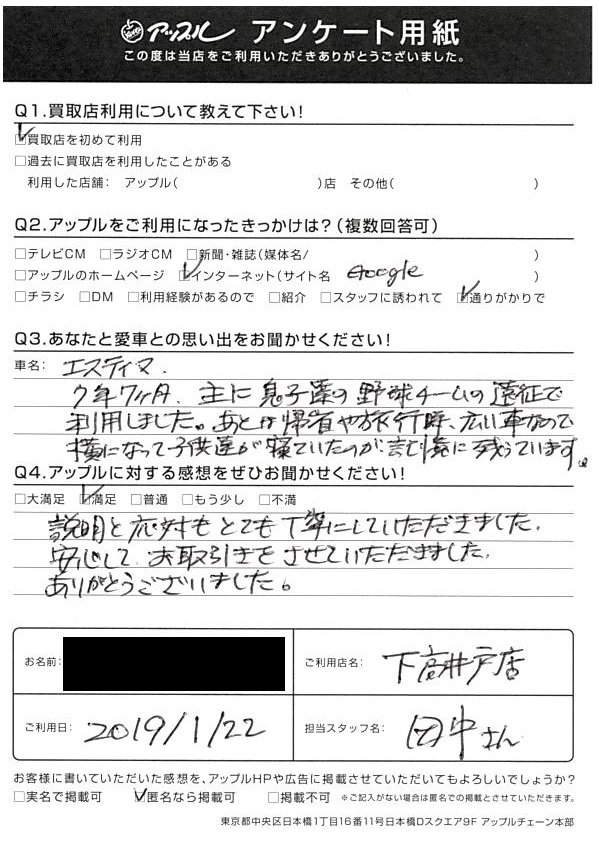 アップル アンケート用紙
この度は当店をご利用いただきありがとうございました。
Q1.買取店利用について教えて下さい!
☑買取店を初めて利用
□過去に買取店を利用したことがある
利用した店舗: アップル( )店 その他( )
Q2.アップルをご利用になったきっかけは?(複数回答可)
□テレビCM □ラジオCM □新聞・雑誌(媒体名/ )
□アップルのホームページ ☑インターネット(サイト名 Google )
□チラシ □DM □利用経験があるので □紹介 □スタッフに誘われて ☑通りがかりで
Q3.あなたと愛車との思い出をお聞かせください!
車名: エスティマ.
7年7ヶ月、主に息子達の野球チームの遠征で
利用しました。あとは帰省や旅行時、広い車なので
横になって子供達が寝ていたのが記憶に残っています。
Q4.アップルに対する感想をぜひお聞かせください!
□大満足 ☑満足 □普通 □もう少し □不満
説明と応対もとても丁寧にしていただきました。
安心して、お取引きをさせていただきました。
ありがとうございました。
お名前: ご利用店名: 下高井戸店
ご利用日: 2019/1/22 担当スタッフ名: 田中さん
お客様に書いていただいた感想を、アップルHPや広告に掲載させていただいてもよろしいでしょうか?
□実名で掲載可 ☑匿名なら掲載可 □掲載不可 ※ご記入がない場合は匿名での掲載とさせていただきます。
東京都中央区日本橋1丁目16番11号日本橋Dスクエア9F アップルチェーン本部